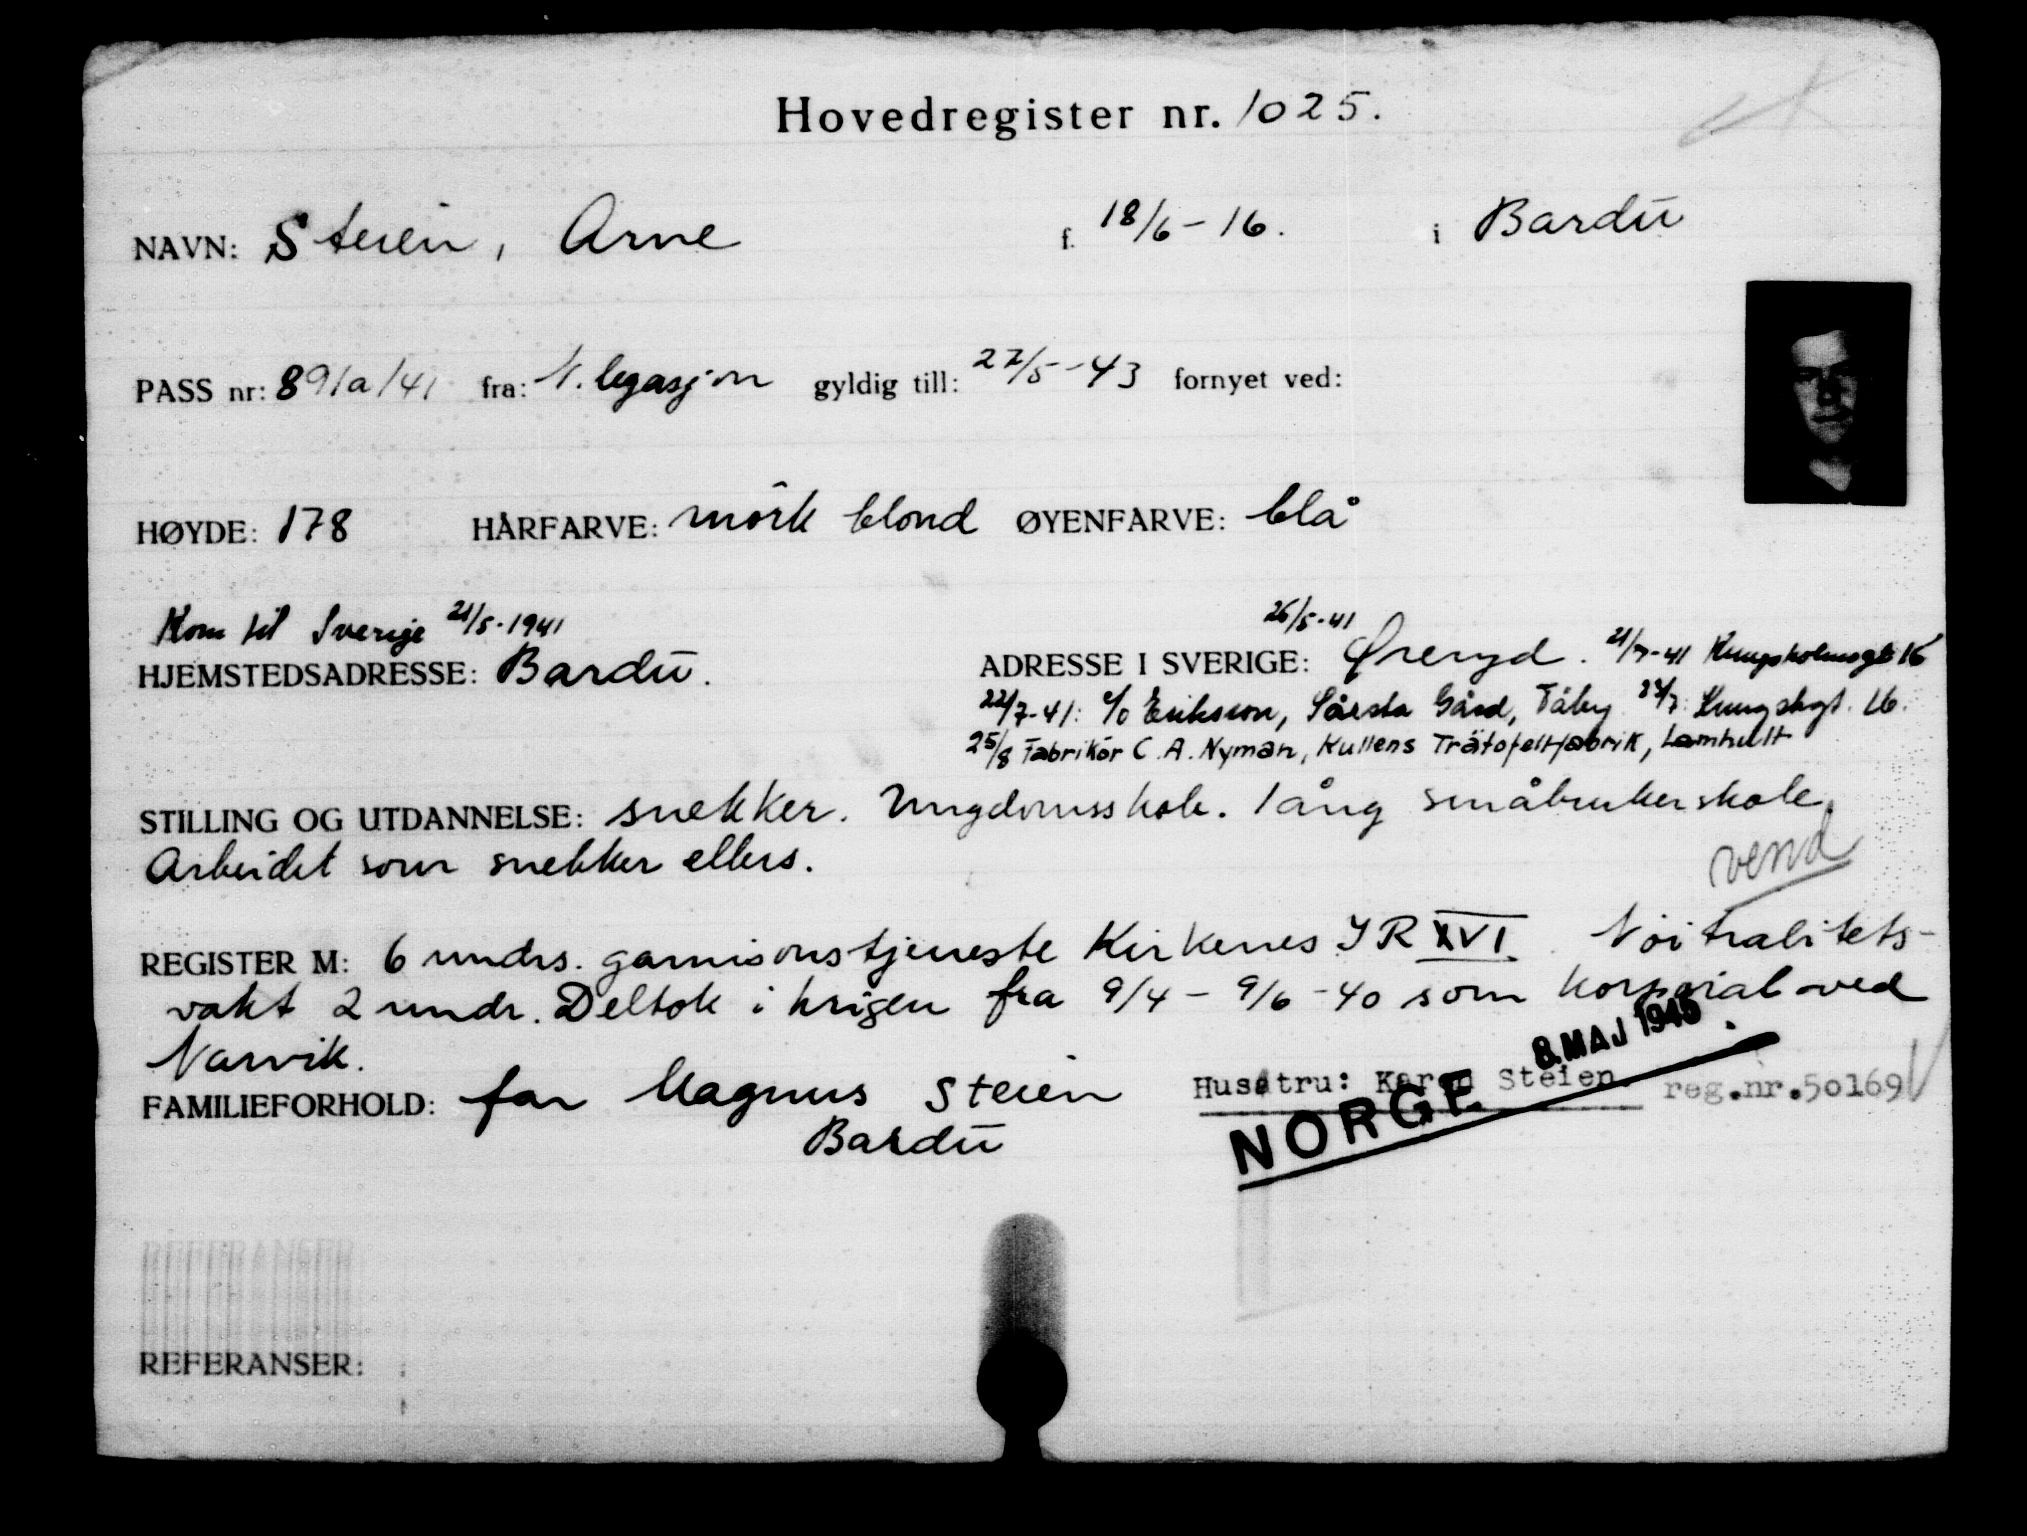 Hovedregister nr. 1025.
NAVN: Steien, Arne f. 18/6-16. i Bardū
PASS nr: 891a/41 fra: N. legasjon gyldig till: 22/5-43 fornyet ved:
HØYDE: 178 HÅRFARVE: mörk blond ØYENFARVE: blå
Kom til Sverige 21/5-1941
26/5-41
HJEMSTEDSADRESSE: Bardū. ADRESSE I SVERIGE: Öreryd. 21/7-41 Kungsholmsgt 16
22/7-41: c/o Eriksson, Såsta Gård, Täby 23/7: Kungshgt. 16.
25/8 Fabrikör C.A. Nyman, Kullens Trätoffelfabrik, Lamhult
STILLING OG UTDANNELSE: snekker. Ungdomsskole. 1 årig småbrukerskole,
Arbeidet som snekker ellers.
vend
REGISTER M: 6 mndrs. garnisonstjeneste Kirkenes IR XVI. Nöitralitets-
vakt 2 mndr. Deltok i krigen fra 9/4 - 9/6-40 som korporal ved
Narvik.
8. MAJ 1945
FAMILIEFORHOLD: far Magnus Steien Hustru: Karen Steien. reg.nr.50169
Bardū
NORGE
REFERANSER: